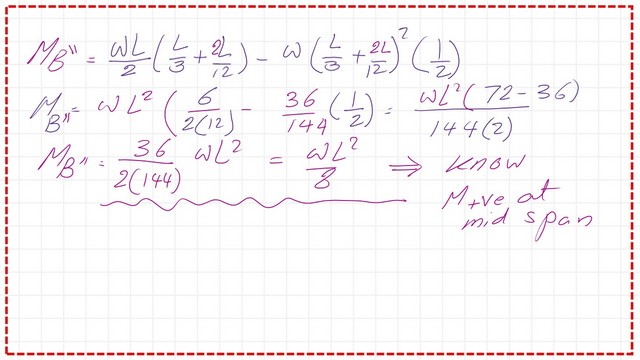 M_B'' = WL/2 (L/3 + 2L/12) - W (L/3 + 2L/12)² (1/2)
M_B'' = WL² (6/2(12) - 36/144 (1/2) = WL² (72 - 36) / 144(2)
M_B'' = 36/2(144) WL² = WL²/8 ⇒ know
M+ve at
mid span